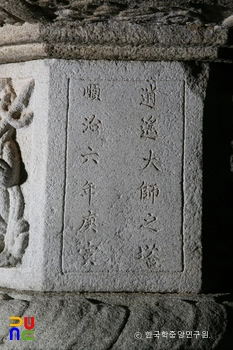 逍遙大師之塔
順治六年庚寅
ⓒ 한국학중앙연구원